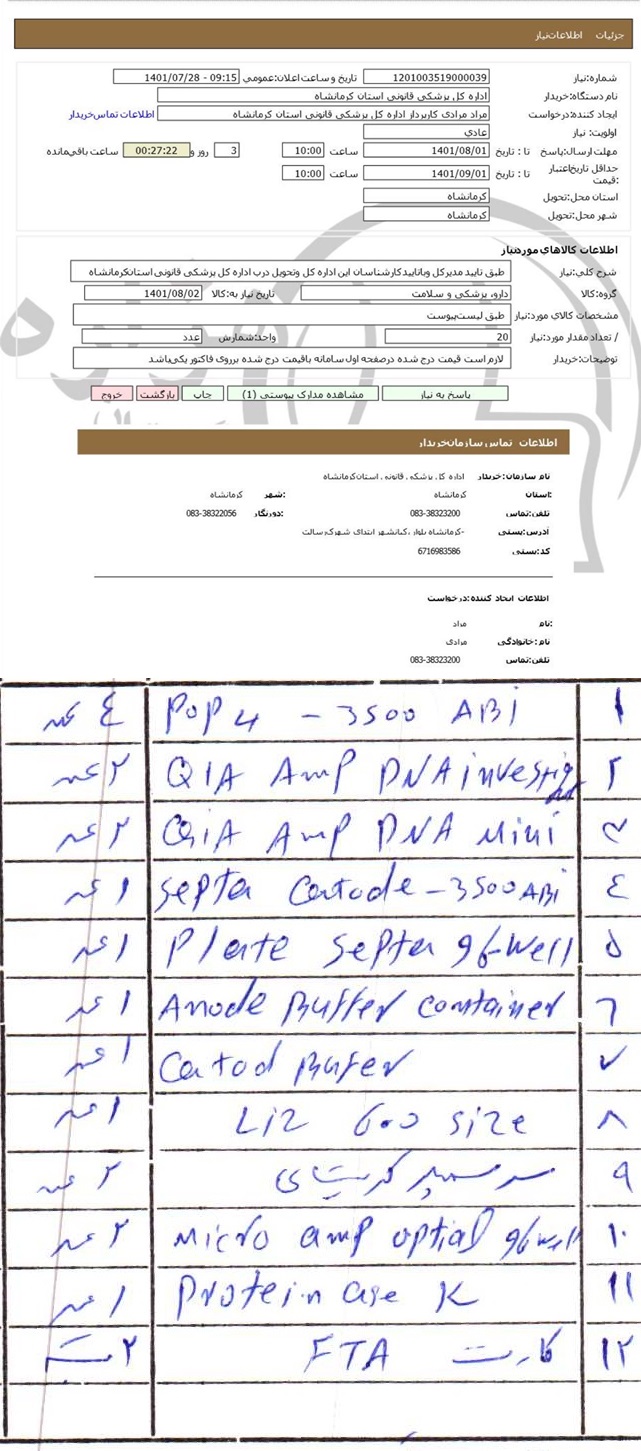 جزئیات اطلاعات نیاز
شماره نیاز: 1201003519000039 تاریخ و ساعت اعلان عمومی: 1401/07/28 - 09:15
نام دستگاه خریدار: اداره کل پزشکی قانونی استان کرمانشاه
ایجاد کننده درخواست: مراد مرادی کارپرداز اداره کل پزشکی قانونی استان کرمانشاه اطلاعات تماس خریدار
اولویت نیاز : عادی
مهلت ارسال پاسخ: تا تاریخ : 1401/08/01 ساعت 10:00 3 روز و 00:27:22 ساعت باقی مانده
حداقل تاریخ اعتبار قیمت: تا تاریخ : 1401/09/01 ساعت 10:00
استان محل تحویل: کرمانشاه
شهر محل تحویل: کرمانشاه
اطلاعات کالاهای مورد نیاز
شرح کلی نیاز: طبق تایید مدیرکل وباتایید کارشناسان این اداره کل وتحویل درب اداره کل پزشکی قانونی استان کرمانشاه
گروه کالا: دارو، پزشکی و سلامت تاریخ نیاز به کالا: 1401/08/02
مشخصات کالای مورد نیاز: طبق لیست پیوست
تعداد / مقدار مورد نیاز: 20 واحد شمارش: عدد
توضیحات خریدار: لازم است قیمت درج شده درصفحه اول سامانه باقیمت درج شده برروی فاکتور یکی باشد
پاسخ به نیاز مشاهده مدارک پیوستی (1) چاپ بازگشت خروج
اطلاعات تماس سازمان خریدار
نام سازمان خریدار: اداره کل پزشکی قانونی استان کرمانشاه
استان: کرمانشاه شهر: کرمانشاه
تلفن تماس: 083-38323200 دورنگار: 083-38322056
آدرس پستی: کرمانشاه بلوار کیانشهر ابتدای شهرک رسالت-
کد پستی: 6716983586
اطلاعات ایجاد کننده درخواست:
نام: مراد
نام خانوادگی: مرادی
تلفن تماس: 083-38323200
۱ POP 4 - 3500 ABi ٤ عدد
۲ QIA Amp DNA investig ۲ عدد
۳ QiA Amp DNA Mini ۲ عدد
٤ Septa Catode - 3500 ABi ۱ عدد
۵ Plate Septa 96-Well ۱ عدد
۶ Anode Buffer container ۱ عدد
۷ Catod Bufer ۱ عدد
۸ Liz 600 size ۱ عدد
۹ سر سمپلر کریستالی ۲ عدد
۱۰ Micro amp optial 96 well ۲ عدد
۱۱ Protein ase K ۱ عدد
۱۲ کارت FTA ۲ بسته